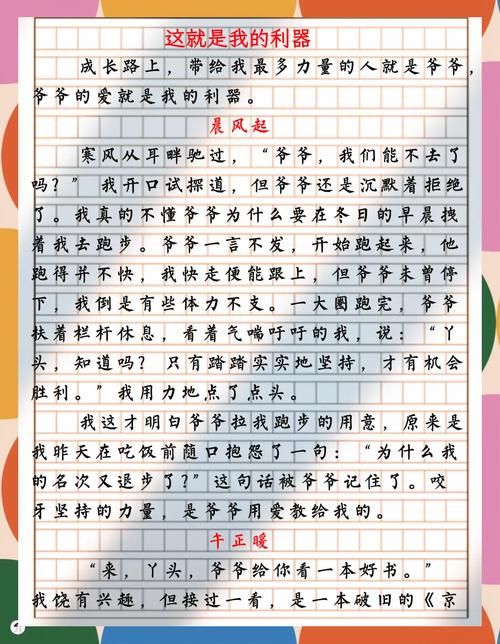 这就是我的利器
成长路上，带给我最多力量的人就是爷爷，
爷爷的爱就是我的利器。
晨风起
寒风从耳畔驰过，“爷爷，我们能不去了
吗？”我开口试探道，但爷爷还是沉默着拒绝
了。我真的不懂爷爷为什么要在冬日的早晨拽
着我去跑步。爷爷一言不发，开始跑起来，他
跑得并不快，我快走便能跟上，但爷爷未曾停
下，我倒是有些体力不支。一大圈跑完，爷爷
扶着栏杆休息，看着气喘吁吁的我，说：“丫
头，知道吗？只有踏踏实实地坚持，才有机会
胜利。”我用力地点了点头。
我这才明白爷爷拉我跑步的用意，原来是
我昨天在吃饭前随口抱怨了一句：“为什么我
的名次又退步了？”这句话被爷爷记住了。咬
牙坚持的力量，是爷爷用爱教给我的。
午正暖
“来，丫头，爷爷给你看一本好书。”
我饶有兴趣，但接过一看，是一本破旧的《京